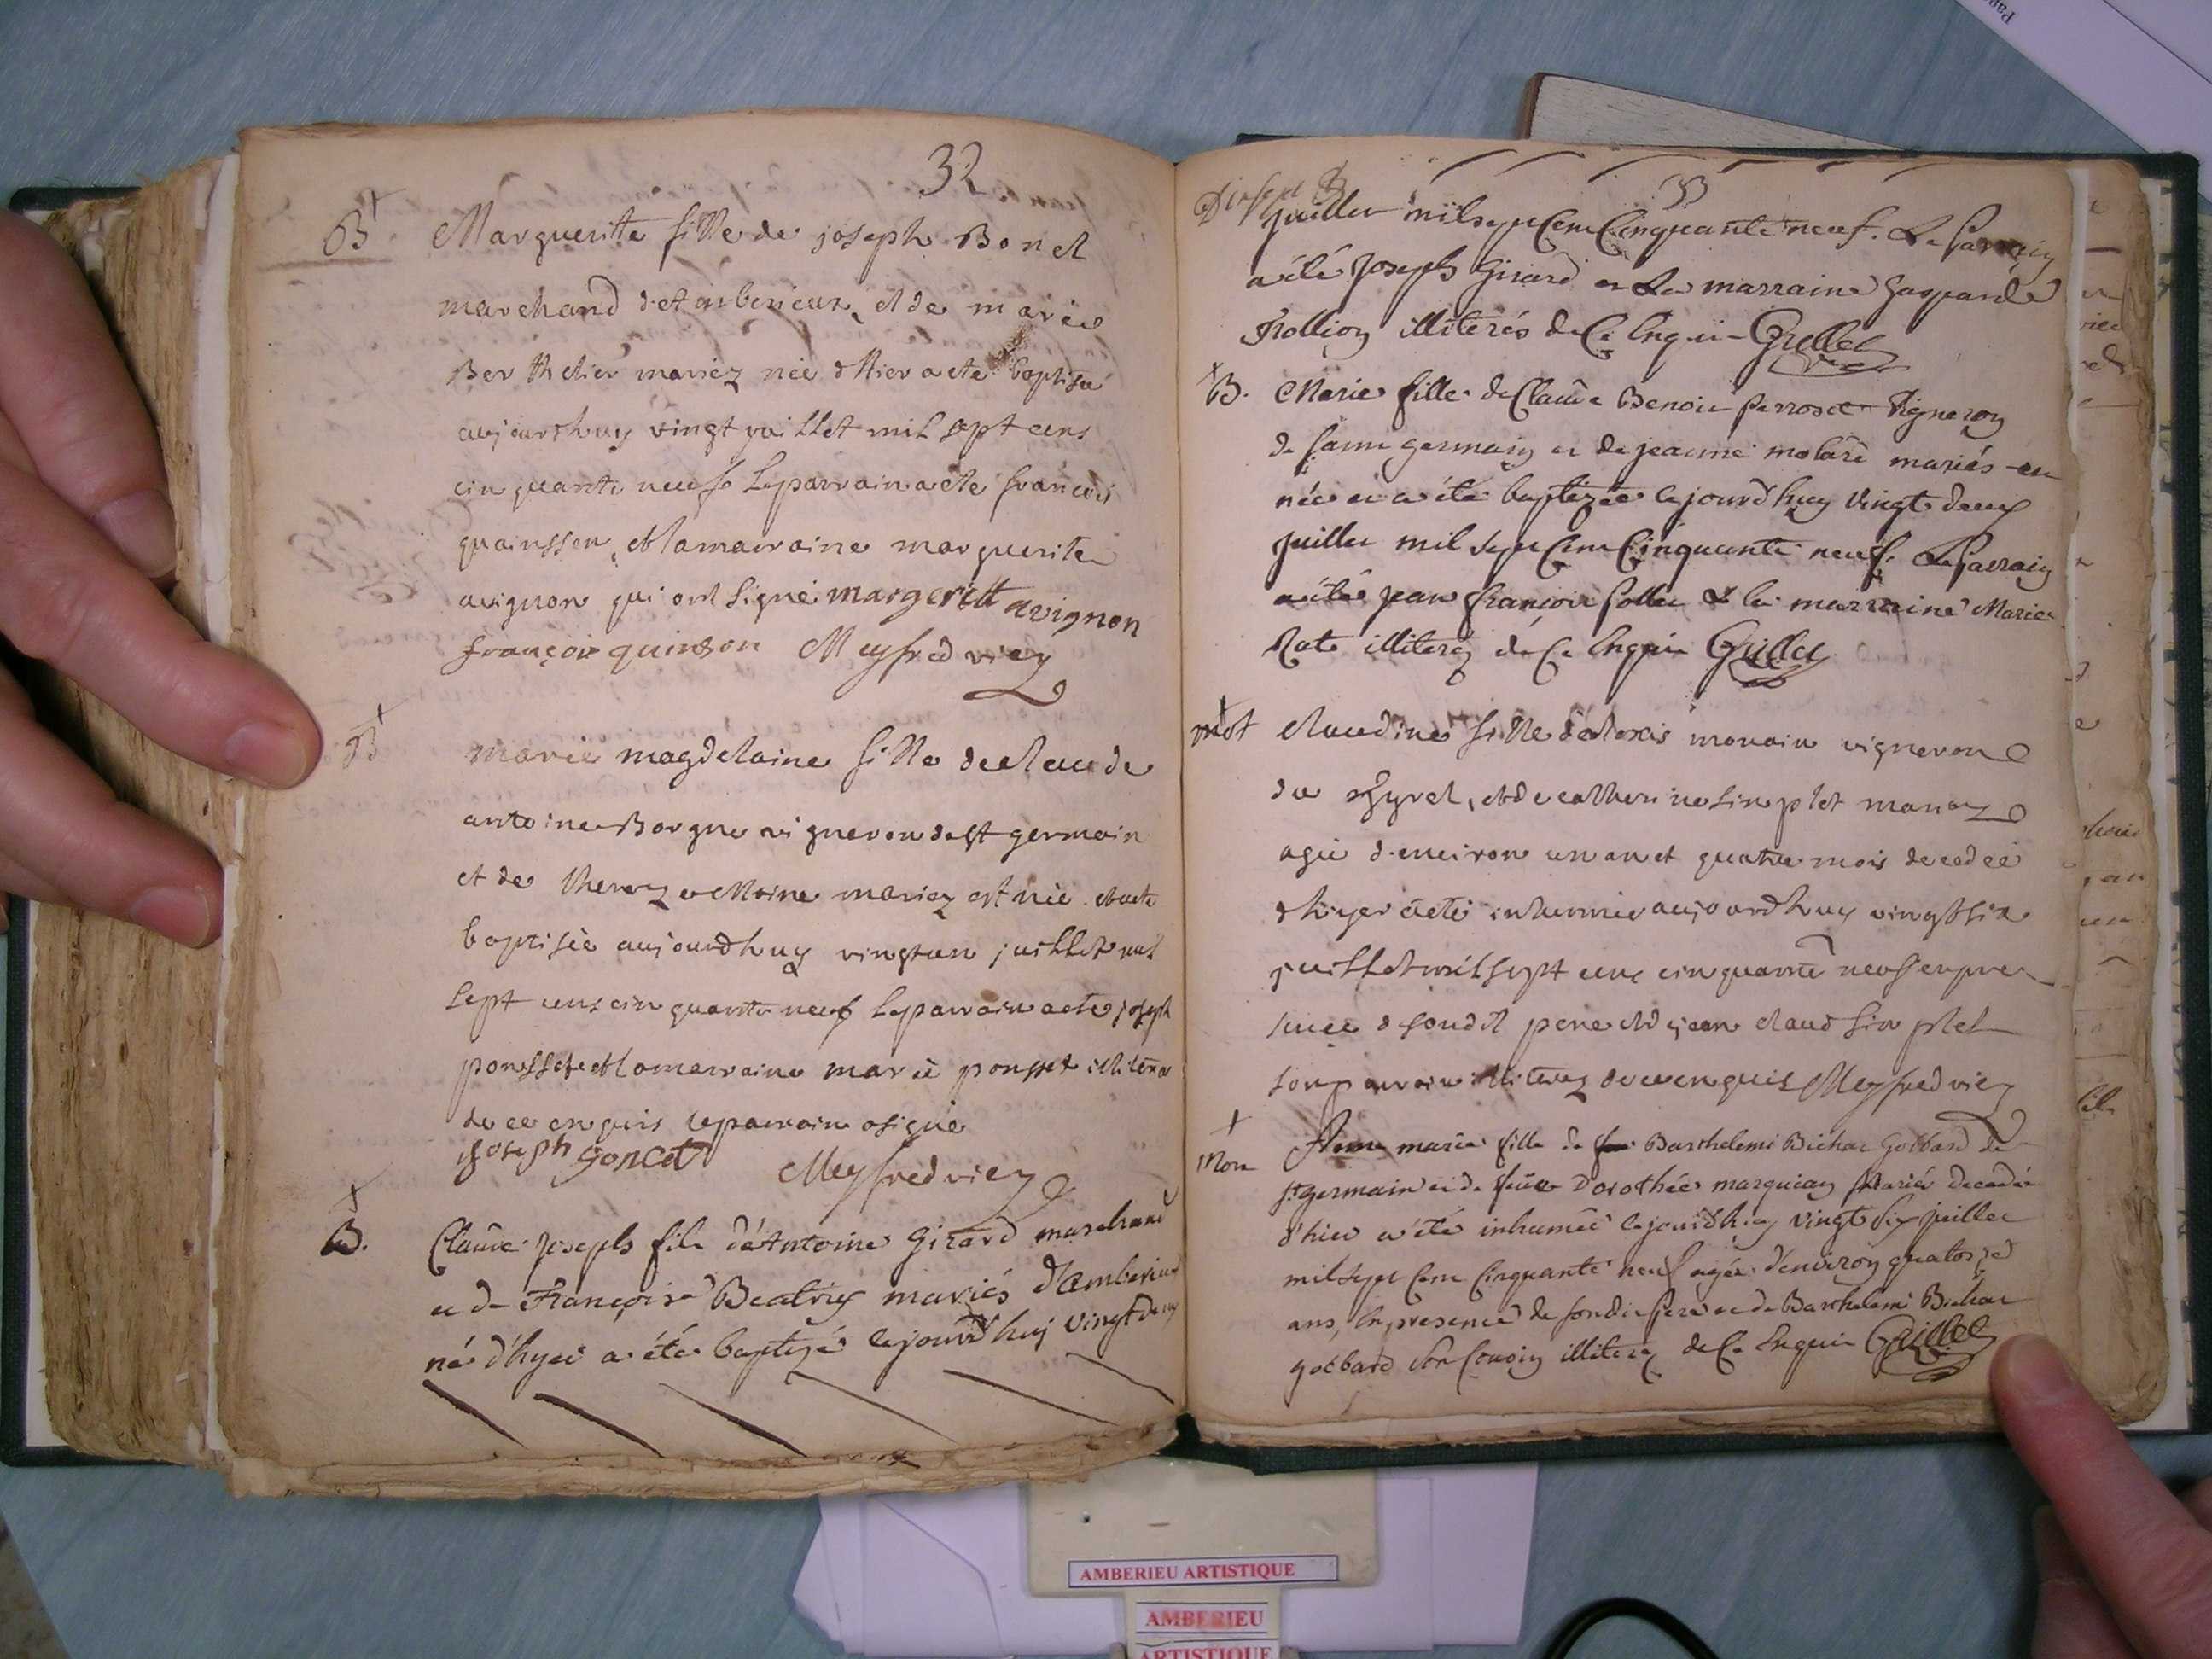 32
B Marguerite fille de joseph Bonet
marchand d'Ambericux, et de marie
Berthelier mariez née d'hier a ete baptisée
aujourdhuy vingt juillet mil sept cens
cinquante neuf le parrain a eté francois
quainsson et la marraine marguerite
avignon qui ont signé margeritt avignon
françois quinson Meyfred viey
B marie magdelaine fille de claude
antoine Borgne vigneron de st germain
et de therez Moine mariez est née et a ete
baptisée aujourdhuy vingt un juillet mil
sept cens cinquante neuf le parrain a ete joseph
ponsset et la marraine marie ponsset illiterez
de ce enquis le parrain a signé
joseph poncet Meyfred viey
B. Claude Joseph fils d'Antoine Girard marchand
et de Françoise Beatrix mariés d'Amberieux
né d'hyer a été baptizé cejourd'huy vingt deux
33
juillet mil sept cent Cinquante neuf. Le parrain
a été Joseph Girard et La marraine Gasparde
Trollion illiterés de Ce Enquis Grillet
B. Marie fille de Claude Benoit perroset Vigneron
de saint germain et de jeanne molard mariés est
née et a été baptizée cejourd'huy vingt deux
juillet mil sept Cent Cinquante neuf. Le parrain
a été jean françois follet & la marraine Marie
Rate illiterés de Ce Enquis Grillet
mort claudine fille d'alexis monain vigneron
du tiret, et de catherine simplet mariez
agée d'environ un an et quatre mois decedée
d'hyer a eté inhumée aujourdhuy vingt six
juillet mil sept cens cinquante neuf en pre
sence de soudit pere et de jean claud simplet
son parrain illiterez de ce enquis Meyfred viey
mort Anne marie fille de Barthelemi Bichat Gobbard de
st germain et de feüe Dorothée marquian mariés decedée
d'hier a été inhumée cejourd'huy vingt six juillet
mil sept Cent Cinquante neuf agée d'environ quatorze
ans, En presence de sondit pere et de Barthelemi Bichat
gobbard son Cousin illiterez de Ce Enquis Grillet
AMBERIEU ARTISTIQUE
AMBERIEU
ARTISTIQUE